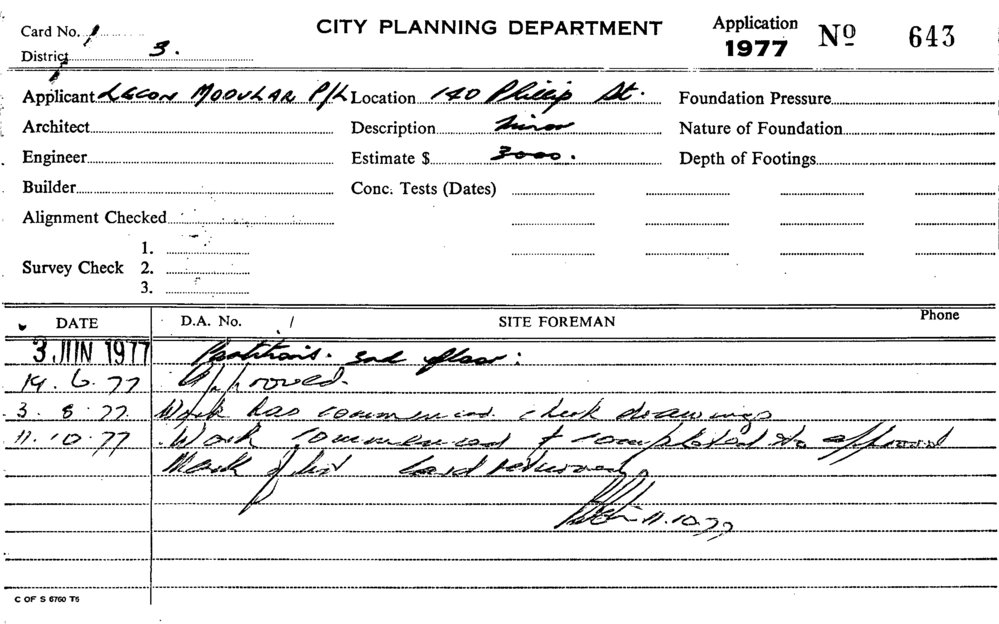 Card No. 1
CITY PLANNING DEPARTMENT
Application
1977
No 643
District 3.
Applicant Lecon Modular P/L
Location 140 Phillip St.
Foundation Pressure
Architect
Description minor
Nature of Foundation
Engineer
Estimate $ 3000.
Depth of Footings
Builder
Conc. Tests (Dates)
Alignment Checked
Survey Check
1.
2.
3.
DATE
D.A. No. /
SITE FOREMAN
Phone
3 JUN 1977 Partitions. 3rd floor:
14.6.77 Approved.
3.8.77. Work has commenced. check drawings
11.10.77 Work commenced & completed to approved
Mark of list Card returned
11.10.77
C OF S 6760 T6